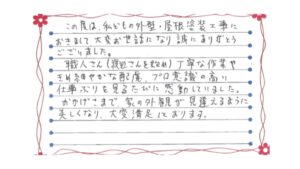 この度は、私どもの外壁・屋根塗装工事に
おきまして大変お世話になり誠にありがとう
ございました。
職人さん(渡辺さんを始め)丁寧な作業や
きめ細やかな配慮、プロ意識の高い
仕事ぶりを見るたびに感動していました。
おかげさまで、家の外観が見違えるように
美しくなり、大変満足しております。